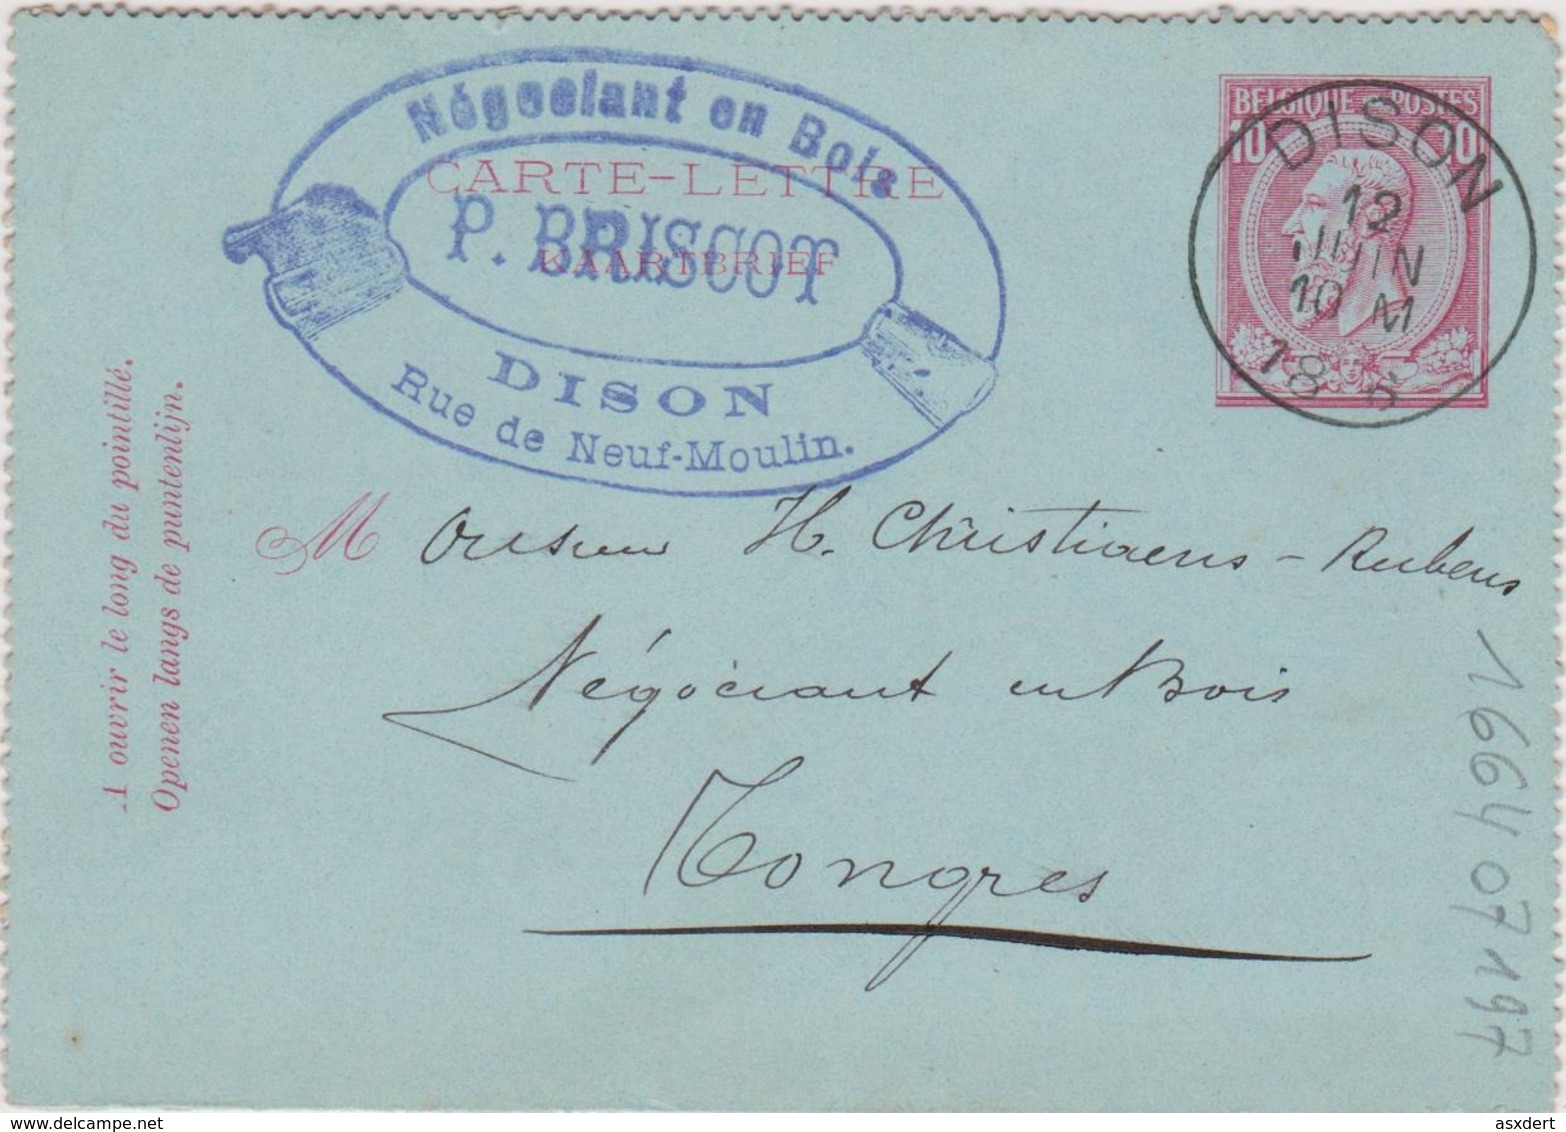 Négociant en Bois
CARTE-LETTRE
P. BRISCOT
KAARTBRIEF
DISON
Rue de Neuf-Moulin.
BELGIQUE POSTES
10 10
DISON
12
JUIN
10 M
18 6
A ouvrir le long du pointillé.
Openen langs de puntenlijn.
Monsieur H. Christiaens-Rubens
Négociant en Bois
Tongres
166407197
asxdert